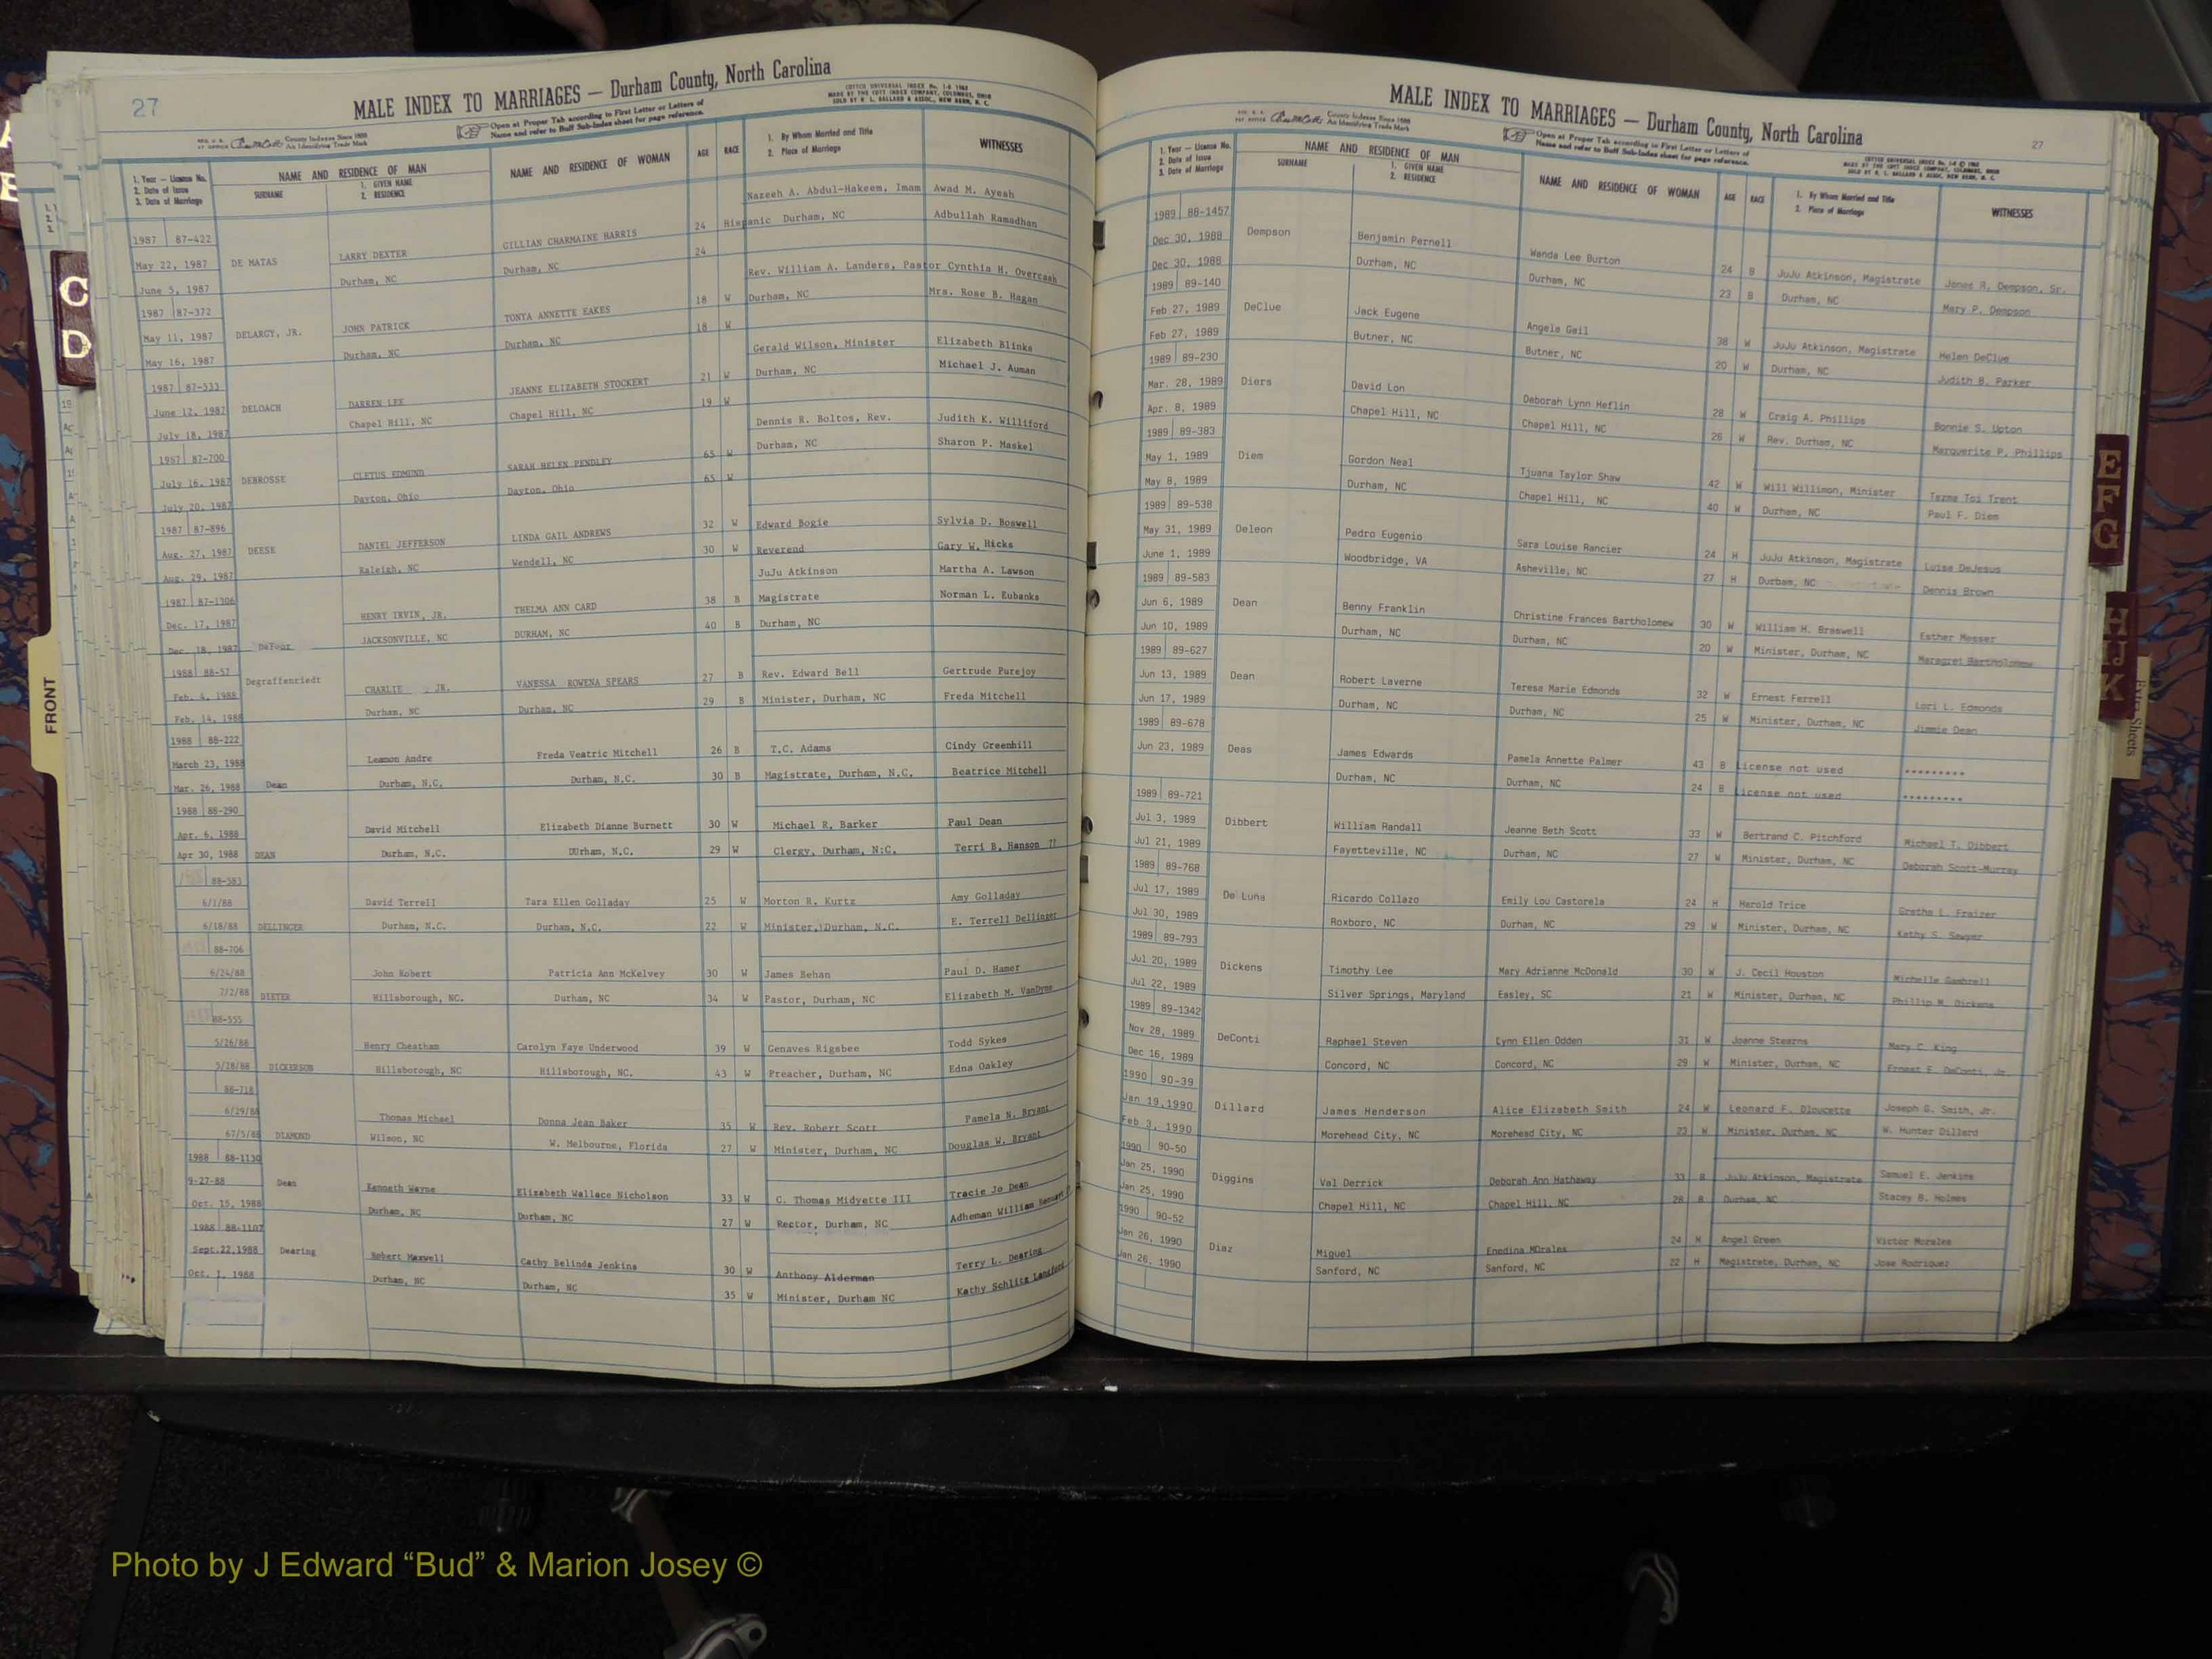 27
MALE INDEX TO MARRIAGES — Durham County, North Carolina
COTT'S UNIVERSAL INDEX No. 1-S 1962
MADE BY THE COTT INDEX COMPANY, COLUMBUS, OHIO
SOLD BY R. L. BALLARD & ASSOC., NEW BERN, N. C.
County Indexes Since 1888
An Identifying Trade Mark
Open at Proper Tab according to First Letter or Letters of
Name and refer to Buff Sub-Index sheet for page reference.
1. Year — License No.
2. Date of Issue
3. Date of Marriage
NAME AND RESIDENCE OF MAN
SURNAME
1. GIVEN NAME
2. RESIDENCE
NAME AND RESIDENCE OF WOMAN
AGE
RACE
1. By Whom Married and Title
2. Place of Marriage
WITNESSES
Nazeeh A. Abdul-Hakeem, Imam Awad M. Ayesh
1987 87-422 GILLIAN CHARMAINE HARRIS 24 Hispanic Durham, NC Adbullah Ramadhan
May 22, 1987 DE MATAS LARRY DEXTER Durham, NC 24
June 5, 1987 Durham, NC Rev. William A. Landers, Pastor Cynthia H. Overcash
1987 87-372 TONYA ANNETTE EAKES 18 W Durham, NC Mrs. Rose B. Hagan
May 11, 1987 DELARGY, JR. JOHN PATRICK Durham, NC 18 W
May 16, 1987 Durham, NC Gerald Wilson, Minister Elizabeth Blinks
1987 87-533 JEANNE ELIZABETH STOCKERT 21 W Durham, NC Michael J. Auman
June 12, 1987 DELOACH DARREN LEE Chapel Hill, NC 19 W
July 18, 1987 Chapel Hill, NC Dennis R. Boltos, Rev. Judith K. Williford
1987 87-700 SARAH HELEN PENDLEY 65 W Durham, NC Sharon P. Maskel
July 16, 1987 DEBROSSE CLETUS EDMUND Dayton, Ohio 65 W
July 20, 1987 Dayton, Ohio
1987 87-896 LINDA GAIL ANDREWS 32 W Edward Bogie Sylvia D. Boswell
Aug. 27, 1987 DEESE DANIEL JEFFERSON Wendell, NC 30 W Reverend Gary W. Hicks
Aug. 29, 1987 Raleigh, NC JuJu Atkinson Martha A. Lawson
1987 87-1306 HENRY IRVIN, JR. THELMA ANN CARD 38 B Magistrate Norman L. Eubanks
Dec. 17, 1987 JACKSONVILLE, NC DURHAM, NC 40 B Durham, NC
Dec. 18, 1987 DeFour
1988 88-57 Degraffenriedt CHARLIE JR. VANESSA ROWENA SPEARS 27 B Rev. Edward Bell Gertrude Purejoy
Feb. 4, 1988 Durham, NC Durham, NC 29 B Minister, Durham, NC Freda Mitchell
Feb. 14, 1988
1988 88-222 Leamon Andre Freda Veatric Mitchell 26 B T.C. Adams Cindy Greenhill
March 23, 1988
Mar. 26, 1988 Dean Durham, N.C. Durham, N.C. 30 B Magistrate, Durham, N.C. Beatrice Mitchell
1988 88-290
Apr. 6, 1988 David Mitchell Elizabeth Dianne Burnett 30 W Michael R. Barker Paul Dean
Apr 30, 1988 DEAN Durham, N.C. DUrham, N.C. 29 W Clergy, Durham, N.C. Terri B. Hanson ??
88-583
6/1/88 David Terrell Tara Ellen Golladay 25 W Morton R. Kurtz Amy Golladay
6/18/88 DELLINGER Durham, N.C. Durham, N.C. 22 W Minister, Durham, N.C. E. Terrell Dellinger
88-706
6/24/88 John Robert Patricia Ann McKelvey 30 W James Behan Paul D. Hamer
7/2/88 DIETER Hillsborough, NC. Durham, NC 34 W Pastor, Durham, NC Elizabeth M. VanDyne
88-555
5/26/88 Henry Cheatham Carolyn Faye Underwood 39 W Genaves Rigsbee Todd Sykes
5/28/88 DICKERSON Hillsborough, NC Hillsborough, NC. 43 W Preacher, Durham, NC Edna Oakley
88-718
6/29/88 Thomas Michael Donna Jean Baker 35 W Rev. Robert Scott Pamela N. Bryant
67/5/88 DIAMOND Wilson, NC W. Melbourne, Florida 27 W Minister, Durham, NC Douglas W. Bryant
1988 88-1130
9-27-88 Dean Kenneth Wayne Elizabeth Wallace Nicholson 33 W C. Thomas Midyette III Tracie Jo Dean
Oct. 15, 1988 Durham, NC Durham, NC 27 W Rector, Durham, NC Adheman William
1988 88-1107
Sept.22,1988 Dearing Robert Maxwell Cathy Belinda Jenkins 30 W Anthony Alderman Terry L. Dearing
Oct. 1, 1988 Durham, NC Durham, NC 35 W Minister, Durham NC Kathy Schlitz Lansford
MALE INDEX TO MARRIAGES — Durham County, North Carolina
27
COTT'S UNIVERSAL INDEX No. 1-S © 1962
MADE BY THE COTT INDEX COMPANY, COLUMBUS, OHIO
SOLD BY R. L. BALLARD & ASSOC., NEW BERN, N. C.
County Indexes Since 1888
An Identifying Trade Mark
Open at Proper Tab according to First Letter or Letters of
Name and refer to Buff Sub-Index sheet for page reference.
1. Year — License No.
2. Date of Issue
3. Date of Marriage
NAME AND RESIDENCE OF MAN
SURNAME
1. GIVEN NAME
2. RESIDENCE
NAME AND RESIDENCE OF WOMAN
AGE
RACE
1. By Whom Married and Title
2. Place of Marriage
WITNESSES
1989 88-1457
Dec 30, 1988 Dempson Benjamin Pernell Wanda Lee Burton 24 B JuJu Atkinson, Magistrate Jones R. Dempson, Sr.
Dec 30, 1988 Durham, NC Durham, NC 23 B Durham, NC Mary P. Dempson
1989 89-140
Feb 27, 1989 DeClue Jack Eugene Angela Gail 38 W JuJu Atkinson, Magistrate Helen DeClue
Feb 27, 1989 Butner, NC Butner, NC 20 W Durham, NC Judith B. Parker
1989 89-230
Mar. 28, 1989 Diers David Lon Deborah Lynn Heflin 28 W Craig A. Phillips Bonnie S. Upton
Apr. 8, 1989 Chapel Hill, NC Chapel Hill, NC 26 W Rev. Durham, NC Marguerite P. Phillips
1989 89-383
May 1, 1989 Diem Gordon Neal Tjuana Taylor Shaw 42 W Will Willimon, Minister Tazme Toi Trent
May 8, 1989 Durham, NC Chapel Hill, NC 40 W Durham, NC Paul F. Diem
1989 89-538
May 31, 1989 Deleon Pedro Eugenio Sara Louise Rancier 24 H JuJu Atkinson, Magistrate Luisa DeJesus
June 1, 1989 Woodbridge, VA Asheville, NC 27 H Durham, NC Dennis Brown
1989 89-583
Jun 6, 1989 Dean Benny Franklin Christine Frances Bartholomew 30 W William H. Braswell Esther Messer
Jun 10, 1989 Durham, NC Durham, NC 20 W Minister, Durham, NC Maragret Bartholomew
1989 89-627
Jun 13, 1989 Dean Robert Laverne Teresa Marie Edmonds 32 W Ernest Ferrell Lori L. Edmonds
Jun 17, 1989 Durham, NC Durham, NC 25 W Minister, Durham, NC Jimmie Dean
1989 89-678
Jun 23, 1989 Deas James Edwards Pamela Annette Palmer 43 B License not used *********
Durham, NC Durham, NC 24 B License not used *********
1989 89-721
Jul 3, 1989 Dibbert William Randall Jeanne Beth Scott 33 W Bertrand C. Pitchford Michael T. Dibbert
Jul 21, 1989 Fayetteville, NC Durham, NC 27 W Minister, Durham, NC Deborah Scott-Murray
1989 89-768
Jul 17, 1989 De Luna Ricardo Collazo Emily Lou Castorela 24 H Harold Trice Gretha L. Fraizer
Jul 30, 1989 Roxboro, NC Durham, NC 29 W Minister, Durham, NC Kathy S. Sawyer
1989 89-793
Jul 20, 1989 Dickens Timothy Lee Mary Adrianne McDonald 30 W J. Cecil Houston Michelle Gambrell
Jul 22, 1989 Silver Springs, Maryland Easley, SC 21 W Minister, Durham, NC Phillip M. Dickens
1989 89-1342
Nov 28, 1989 DeConti Raphael Steven Lynn Ellen Odden 31 W Joanne Stearns Mary C. King
Dec 16, 1989 Concord, NC Concord, NC 29 W Minister, Durham, NC Ernest E. DeConti, Jr
1990 90-39
Jan 19,1990 Dillard James Henderson Alice Elizabeth Smith 24 W Leonard F. Doucette Joseph G. Smith, Jr.
Feb 3, 1990 Morehead City, NC Morehead City, NC 23 W Minister, Durham, NC W. Hunter Dillard
1990 90-50
Jan 25, 1990 Diggins Val Derrick Deborah Ann Hathaway 33 B JuJu Atkinson, Magistrate Samuel E. Jenkins
Jan 25, 1990 Chapel Hill, NC Chapel Hill, NC 28 B Durham, NC Stacey B. Holmes
1990 90-52
Jan 26, 1990 Diaz Miguel Enedina MOrales 24 H Angel Green Victor Morales
Jan 26, 1990 Sanford, NC Sanford, NC 22 H Magistrate, Durham, NC Jose Rodriquez
C
D
FRONT
E
F
G
H
IJ
K
Extra Sheets
Photo by J Edward “Bud” & Marion Josey ©